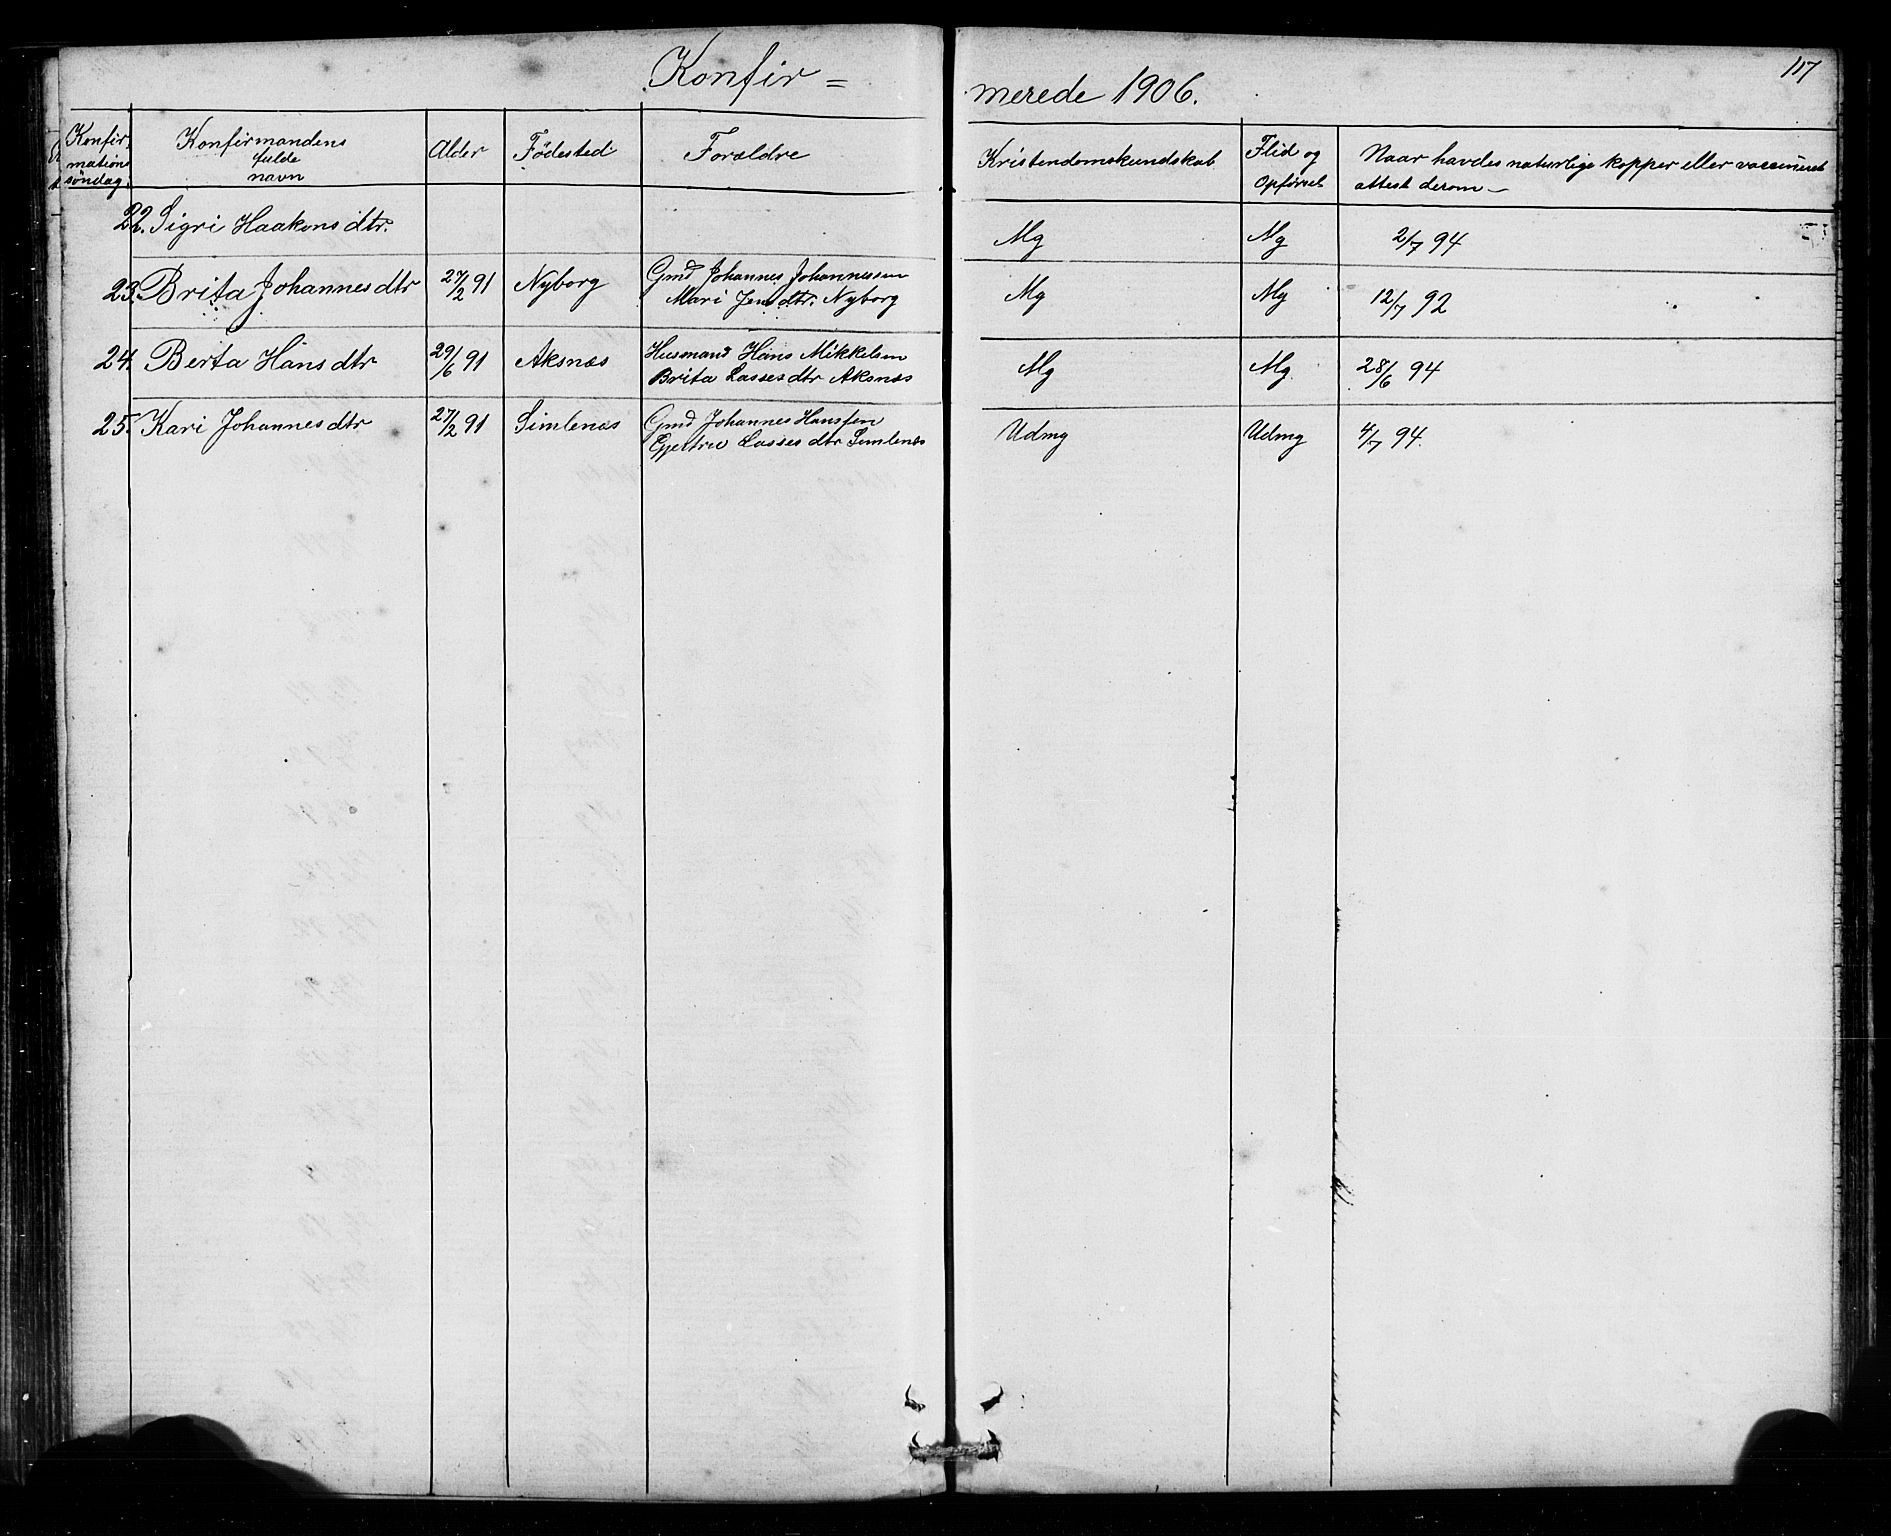 Konfir=
merede 1906.
117
Konfir-
mations
søndag.
Konfirmandens
fulde
navn
Alder
Fødested
Forældre
Kristendomskundskab
Flid og
Opførsel
Naar havdes naturlige kopper eller vaccineret
attest derom -
22. Sigri Haakonsdtr. Mg Mg 2/7 94
23. Brita Johannesdtr 27/2 91 Nyborg Gmd Johannes Johannessen
Mari Jensdtr. Nyborg Mg Mg 12/7 92
24. Berta Hansdtr 29/6 91 Aksnæs Husmand Hans Mikkelsen
Brita Lassesdtr Aksnæs Mg Mg. 28/6 94
25. Kari Johannesdtr 27/2 91 Simlenæs Gmd Johannes Hanssen
Gjertru Lassesdtr Simlenæs Udmg Udmg 4/7 94.